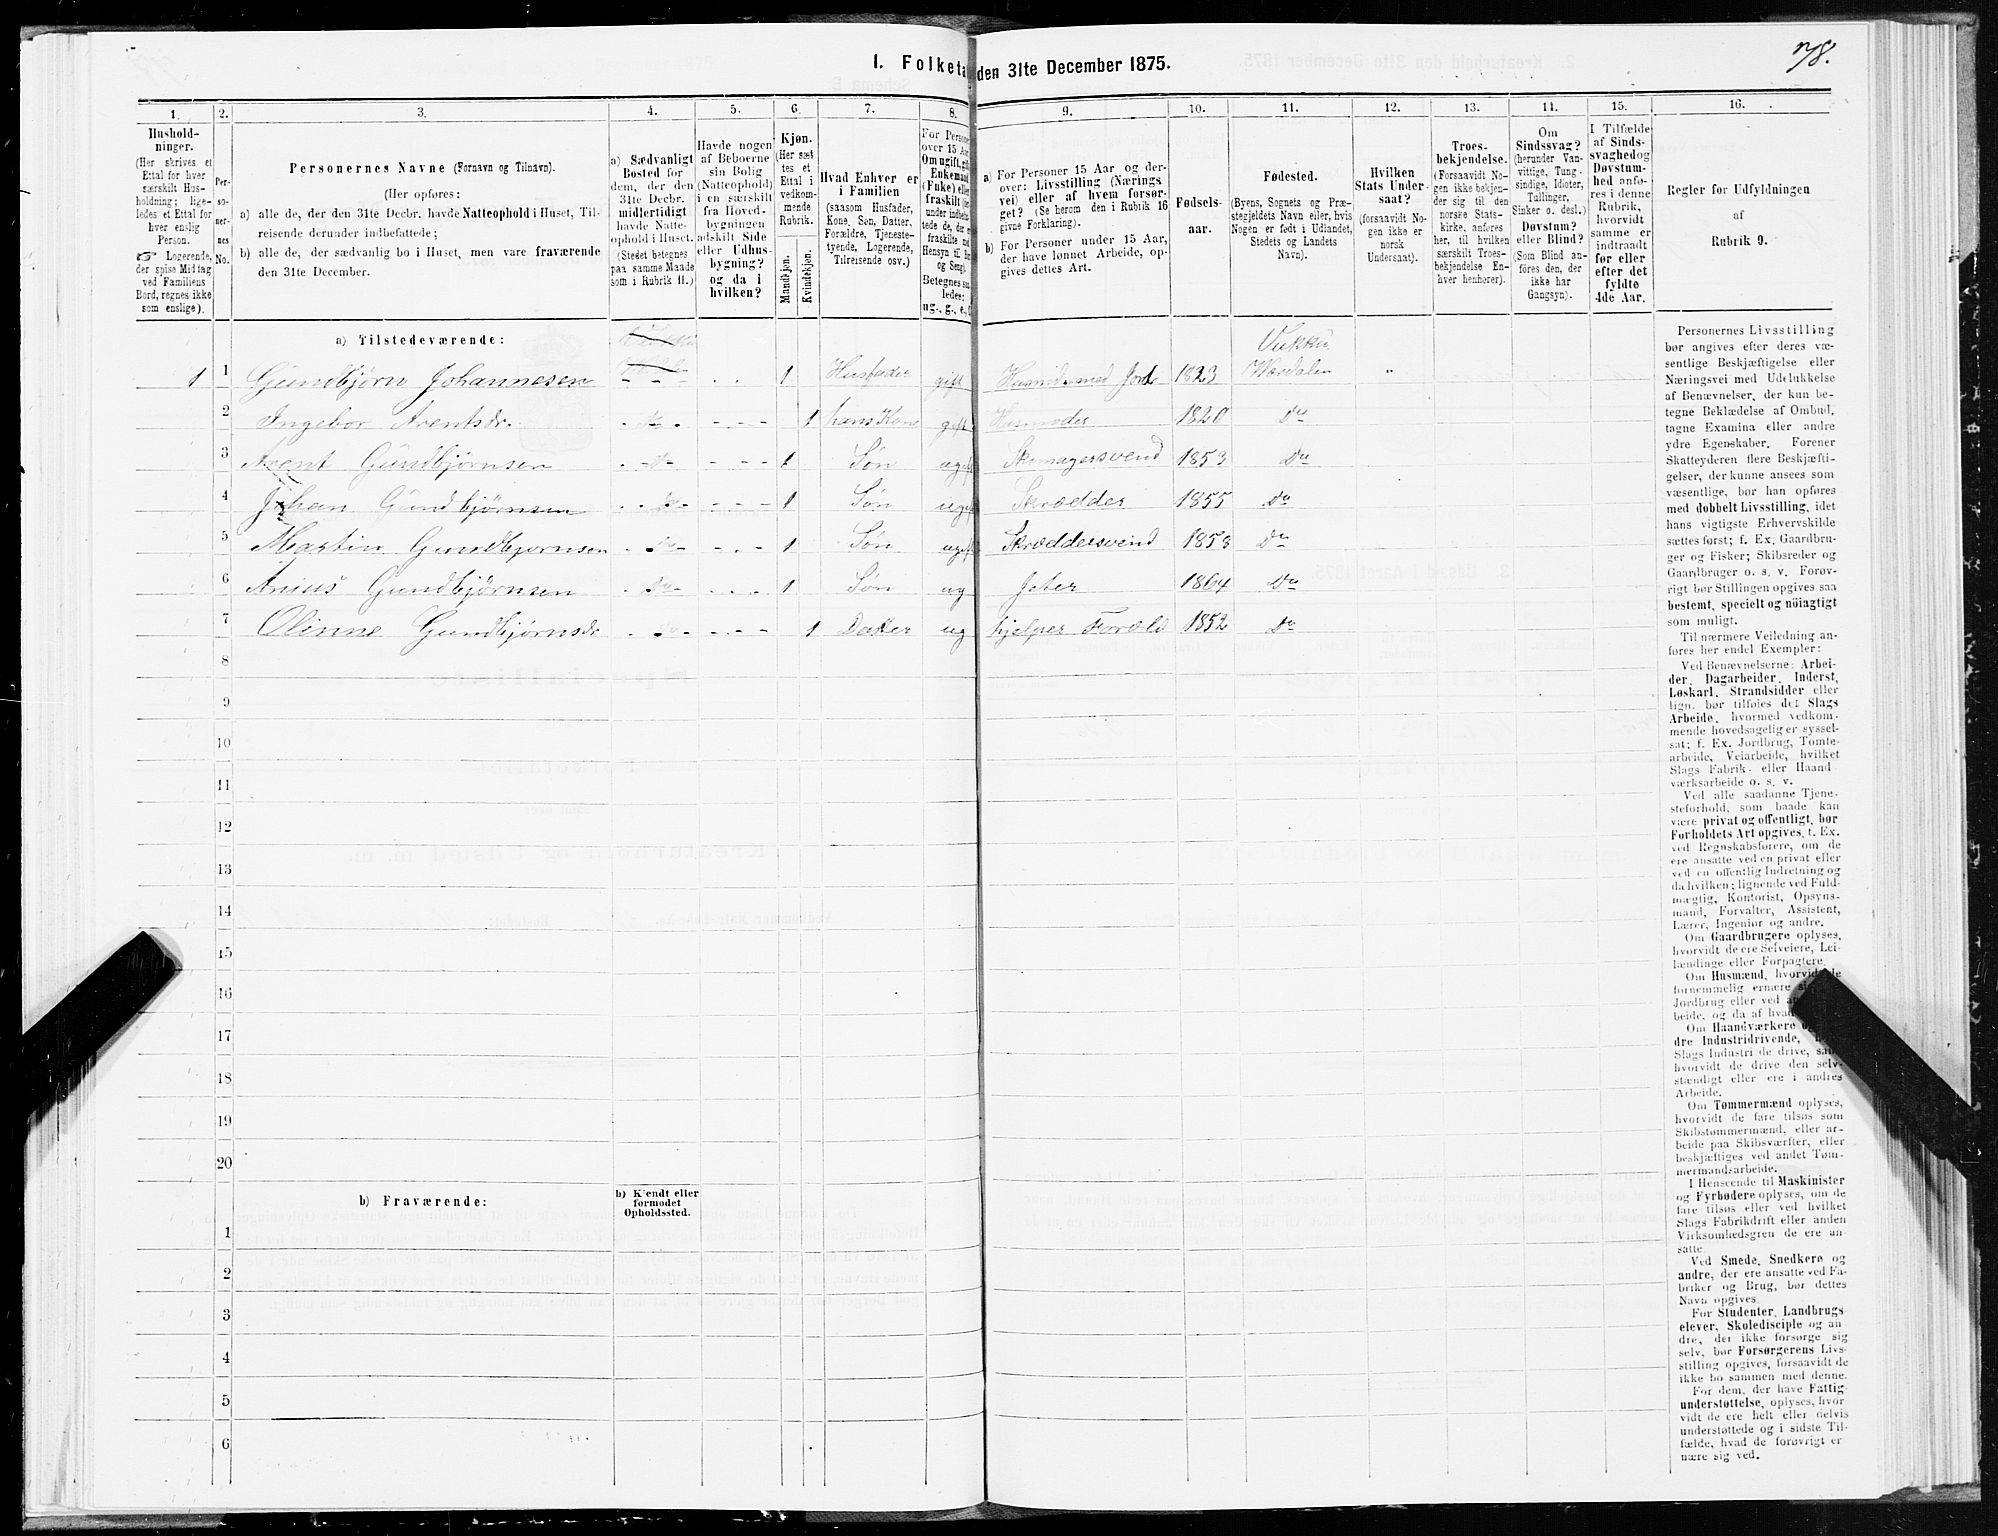 78.
I. Folketa den 31te December 1875.
1. 2. 3. 4. 5. 6. 7. 8. 9. 10. 11. 12. 13. 14. 15. 16.
Hushold-
ninger.
(Her skrives et
Ettal for hver
særskilt Hus-
holdning; lige-
ledes et Ettal for
hver enslig
Person.
☞ Logerende,
der spise Middag
ved Familiens
Bord, regnes ikke
som enslige).
Per-
so-
ner-
nes
No.
Personernes Navne (Fornavn og Tilnavn).
(Her opføres:
a) alle de, der den 31te Decbr. havde Natteophold i Huset, Til-
reisende derunder indbefattede;
b) alle de, der sædvanlig bo i Huset, men vare fraværende
den 31te December.
a) Sædvanligt
Bosted for
dem, der den
31te Decbr.
midlertidigt
havde Natte-
ophold i Huset.
(Stedet betegnes
paa samme Maade
som i Rubrik 11.)
Havde nogen
af Beboerne
sin Bolig
(Natteophold)
i en særskilt
fra Hoved-
bygningen
adskilt Side
eller Udhus-
bygning?
og da i
hvilken?
Kjøn.
(Her sæt-
tes et
Ettal i
vedkom-
mende
Rubrik.
Mandkjøn.
Kvindekjøn.
Hvad Enhver er
i Familien
(saasom Husfader,
Kone, Søn, Datter,
Forældre, Tjeneste-
tyende, Logerende,
Tilreisende osv.)
For Persone
over 15 Aar
Om ugift, gift,
Enkemand
(Enke) eller
fraskilt
under indbefat-
tede de, der
fraskilte med
Hensyn til Bo
og Seng).
Betegnes saa-
ledes:
ug., g., e.,
a) For Personer 15 Aar og der-
over: Livsstilling (Nærings-
vei) eller af hvem forsør-
get? (Se herom den i Rubrik 16
givne Forklaring).
b) For Personer under 15 Aar,
der have lønnet Arbeide, op-
gives dettes Art.
Fødsels-
aar.
Fødested.
(Byens, Sognets og Præ-
stegjeldets Navn eller, hvis
Nogen er født i Udlandet,
Stedets og Landets
Navn).
Hvilken
Stats Under-
saat?
(forsaavidt No-
gen ikke er
norsk
Undersaat).
Troes-
bekjendelse.
(Forsaavidt No-
gen ikke bekjen-
der sig til den
norske Stats-
kirke, anføres
her, til hvilken
særskilt Troes-
bekjendelse En-
hver henhører).
Om
Sindssvag?
(herunder Van-
vittige, Tung-
sindige, Idioter,
Tullinger,
Sinker o. desl.)
Døvstum?
eller Blind?
(Som Blind an-
føres den, der
ikke har
Gangsyn).
I Tilfælde
af Sinds-
svaghed og
Døvstum-
hed anfø-
res i denne
Rubrik,
hvorvidt
samme er
indtraadt
før eller
efter det
fyldte
4de Aar.
Regler for Udfyldningen
af
Rubrik 9.
a) Tilstedeværende:
1 1 Gundbjørn Johannesen 1 Husfader gift Husmid. med Jord 1823 Vukku Værdalen
2 Ingebor Arentsdr. Do 1 hans Kone gift Husmoder 1820 Do
3 Arent Gundbjørnsen Do 1 Søn ugift Skomagersvend 1853 Do
4 Johan Gundbjørnsen Do 1 Søn ugift Skrædder 1855 Do
5 Martin Gundbjørnsen Do 1 Søn ugift Skræddersvend 1858 Do
6 Anius Gundbjørnsen Do 1 Søn ug Jeter 1864 Do
7 Olinne Gundbjørnsdr Do 1 Datter ug hjelper Foræld 1852 Do
8
9
10
11
12
13
14
15
16
17
18
19
20
b) Fraværende:
b) Kjendt eller
formodet
Opholdssted.
1
2
3
4
5
6
Personernes Livsstilling
bør angives efter deres væ-
sentlige Beskjæftigelse eller
Næringsvei med Udelukkelse
af Benævnelser, der kun be-
tegne Beklædelse af Ombud,
tagne Examina eller andre
ydre Egenskaber. Forener
Skatteyderen flere Beskjæfti-
gelser, der kunne ansees som
væsentlige, bør han opføres
med dobbelt Livsstilling, idet
hans vigtigste Erhvervskilde
sættes først; f. Ex. Gaardbru-
ger og Fisker; Skibsreder og
Gaardbruger o. s. v. Forøv-
rigt bør Stillingen opgives saa
bestemt, specielt og nöiagtigt
som muligt.
Til nærmere Veiledning an-
føres her endel Exempler:
Ved Benævnelserne: Arbei-
der, Dagarbeider, Inderst,
Løskarl, Strandsidder eller
lign. bør tilføies det Slags
Arbeide, hvormed vedkom-
mende hovedsagelig er syssel-
sat; f. Ex. Jordbrug, Tomte-
arbeide, Veiarbeide, hvilket
Slags Fabrik- eller Haand-
værksarbeide o. s. v.
Ved alle saadanne Tjene-
steforhold, som baade kan
være privat og offentligt, bør
Forholdets Art opgives, t. Ex.
ved Regnskabsførere, om de
ere ansatte ved en privat eller
ved en offentlig Indretning og
da hvilken; lignende ved Fuld-
mægtig, Kontorist, Opsyns-
mand, Forvalter, Assistent,
Lærer, Ingeniør og andre.
Om Gaardbrugere oplyses,
hvorvidt de ere Selveiere, Lei-
lændinge eller Forpagtere.
Om Husmænd, hvorvidt de
fornemmelig ernære
Jordbrug eller ved
beide, og da af hvad
Om Haandværkere
dre Industridrivende,
Slags Industri de drive, samt
hvorvidt de drive den selv-
stændigt eller ere i andres
Arbeide.
Om Tømmermænd oplyses,
hvorvidt de fare tilsøs som
Skibstømmermænd, eller ar-
beide paa Skibsværfter, eller
beskjæftiges ved andet Tøm-
mermandsarbeide.
I Henseende til Maskinister
og Fyrbødere oplyses, om de
fare tilsøs eller ved hvilket
Slags Fabrikdrift eller anden
Virksomhedsgren de ere an-
satte.
Ved Smede, Snedkere og
andre, der ere ansatte ved Fa-
briker og Brug, bør dettes
Navn opgives.
For Studenter, Landbrugs-
elever, Skoledisciple og an-
dre, der ikke forsørge sig
selv, bør Forsørgerens Livs-
stilling opgives, forsaavidt de
ikke bo sammen med denne.
For dem, der have Fattig-
understøttelse, oplyses, hvor-
vidt de ere helt eller delvis
understøttede og i sidste Til-
fælde, hvad de forøvrigt er-
nære sig ved.